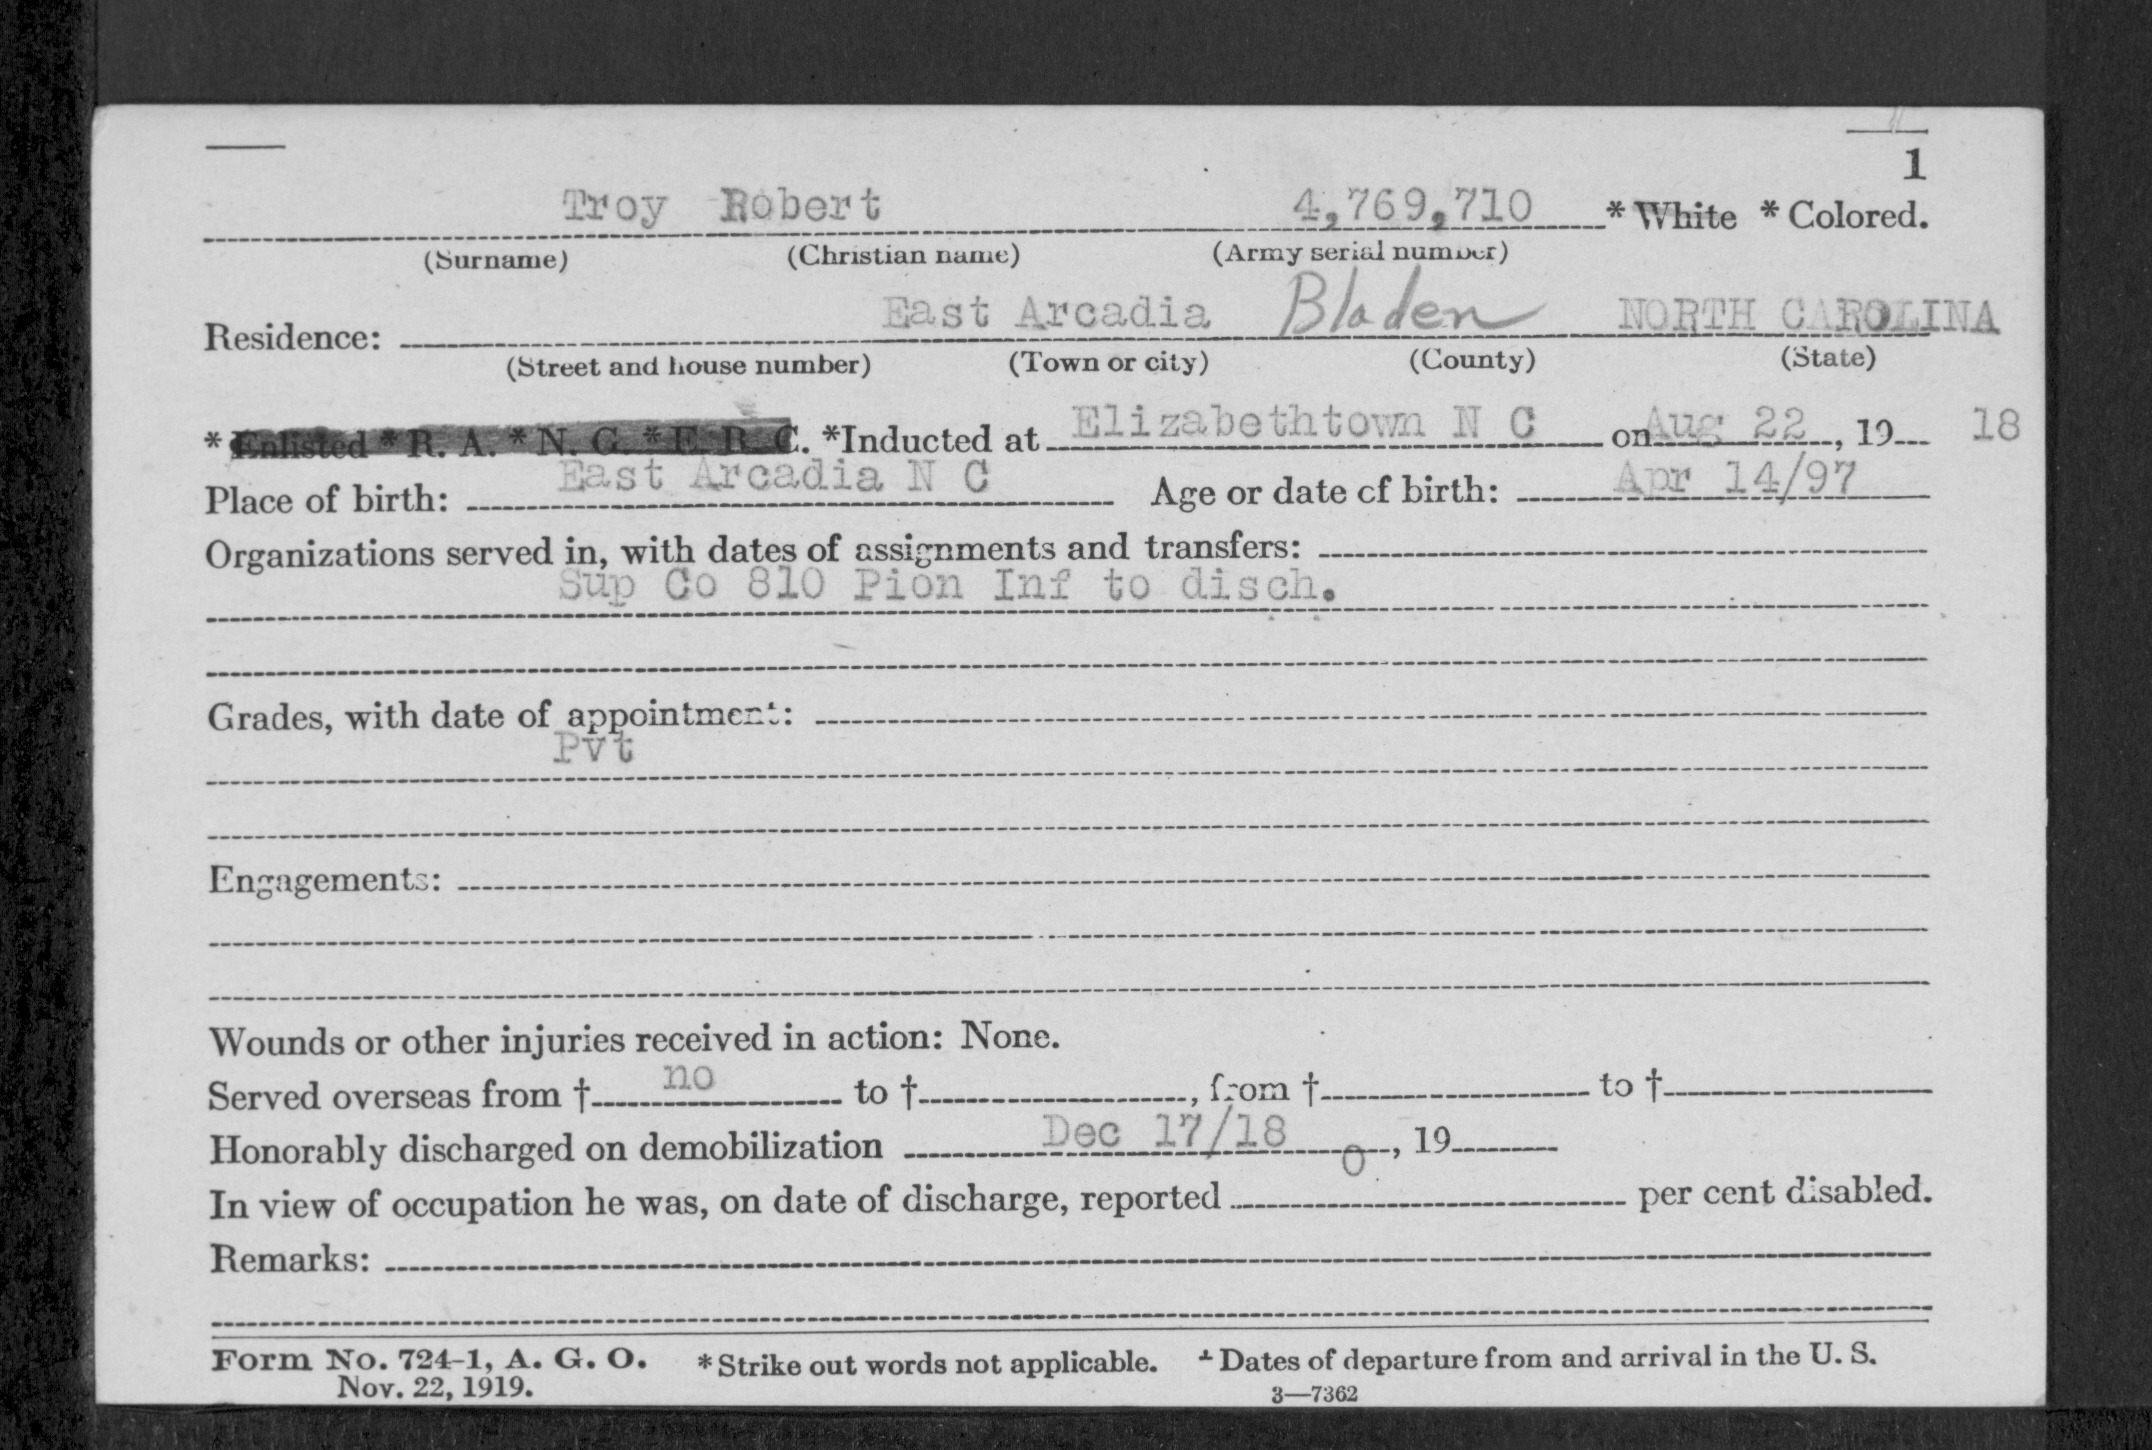 1
Troy Robert 4,769,710 * White * Colored.
(Surname) (Christian name) (Army serial number)
Residence: East Arcadia Bladen NORTH CAROLINA
(Street and house number) (Town or city) (County) (State)
* Enlisted * R. A. * N. G. * E. R. C. *Inducted at Elizabethtown N C on Aug 22, 19 18
Place of birth: East Arcadia N C Age or date of birth: Apr 14/97
Organizations served in, with dates of assignments and transfers:
Sup Co 810 Pion Inf to disch.
Grades, with date of appointment:
Pvt
Engagements:
Wounds or other injuries received in action: None.
Served overseas from † no to †, from † to †
Honorably discharged on demobilization Dec 17/18, 19
In view of occupation he was, on date of discharge, reported 0 per cent disabled.
Remarks:
Form No. 724-1, A. G. O. * Strike out words not applicable. † Dates of departure from and arrival in the U. S.
Nov. 22, 1919. 3—7362